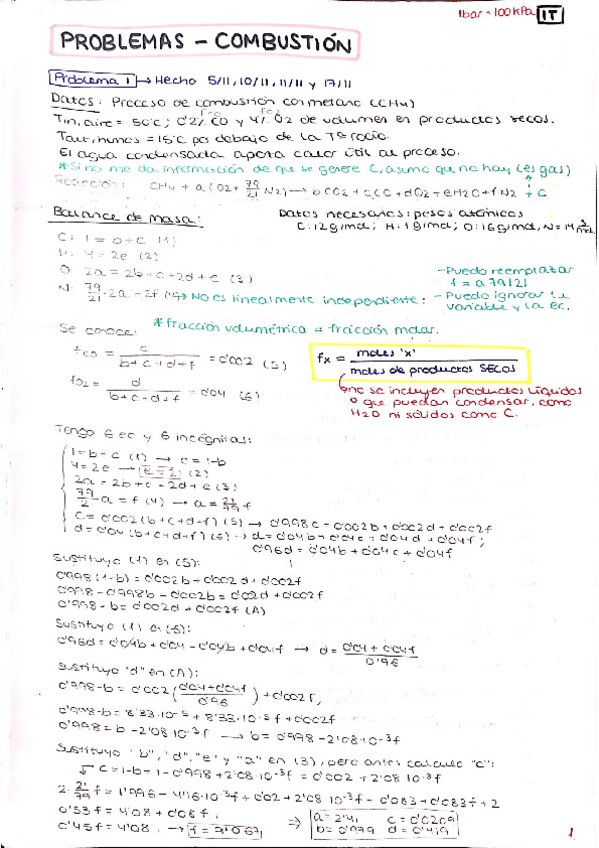 1bar = 100kPa 1T
PROBLEMAS - COMBUSTIÓN
Problema 1 → Hecho 5/11, 10/11, 11/11 y 17/11
Datos: Proceso de combustión con metano (CH4)
Tin, aire = 50ºC; 0'2% CO y 4% O2 de volumen en productos secos.
Tout, humos = 15ºC por debajo de la Tª rocío.
El agua condensada aporta calor útil al proceso.
*Si no me da información de que se genere C, asumo que no hay (es gas)
Reacción: CH4 + a(O2 + 79/21 N2) → bCO2 + cCO + dO2 + eH2O + fN2 + C
Balance de masa:
Datos necesarios: pesos atómicos
C: 12g/mol; H: 1g/mol; O: 16g/mol, N = 14 g/mol
C: 1 = b+c (1)
H: 4 = 2e (2)
O: 2a = 2b + c + 2d + e (3)
N: 79/21 · 2a = 2f (4) → No es linealmente independiente:
- Puedo reemplazar f = a 79/21
- Puedo ignorar la variable y la ec.
Se conoce: *fracción volumétrica = fracción molar.
fco = c / b+c+d+f = 0'002 (5)
fO2 = d / b+c+d+f = 0'04 (6)
fx = moles 'x' / moles de productos SECOS
no se incluyen productos líquidos
o que puedan condensar, como
H2O ni sólidos como C.
Tengo 6 ec y 6 incógnitas:
1 = b + c (1) → c = 1-b
4 = 2e → e = 2 (2)
2a = 2b + c + 2d + e (3)
79/21 a = f (4) → a = 21/79 f
c = 0'002 (b+c+d+f) (5) → 0'998c = 0'002b + 0'002d + 0'002f
d = 0'04 (b+c+d+f) (6) → d = 0'04b + 0'04c + 0'04d + 0'04f;
0'96d = 0'04b + 0'04c + 0'04f
Sustituyo (1) en (5):
0'998 (1-b) = 0'002b + 0'002d + 0'002f
0'998 - 0'998b - 0'002b = 0'02d + 0'002f
0'998 - b = 0'002d + 0'002f (A)
Sustituyo (1) en (6):
0'96d = 0'04b + 0'04 - 0'04b + 0'04f → d = 0'04 + 0'04f / 0'96
Sustituyo "d" en (A):
0'998 - b = 0'002 (0'04+0'04f / 0'96) + 0'002f,
0'998 - b = 8'33·10-5 + 8'33·10-5 f + 0'002f
0'998 = b - 2'08·10-3f → b = 0'998 - 2'08·10-3f
Sustituyo "b", "d", "e" y "a" en (3), pero antes calculo "c":
c = 1-b = 1 - 0'998 + 2'08·10-3f = 0'002 + 2'08·10-3f
2· 21/79 f = 1'996 - 4'16·10-3f + 0'02 + 2'08·10-3f - 0'083 + 0'083f + 2
0'53f = 4'08 + 0'08f.
0'45f = 4'08. → f = 9'067
⇒ a = 2'41 c = 0'0209
b = 0'979 d = 0'419
1